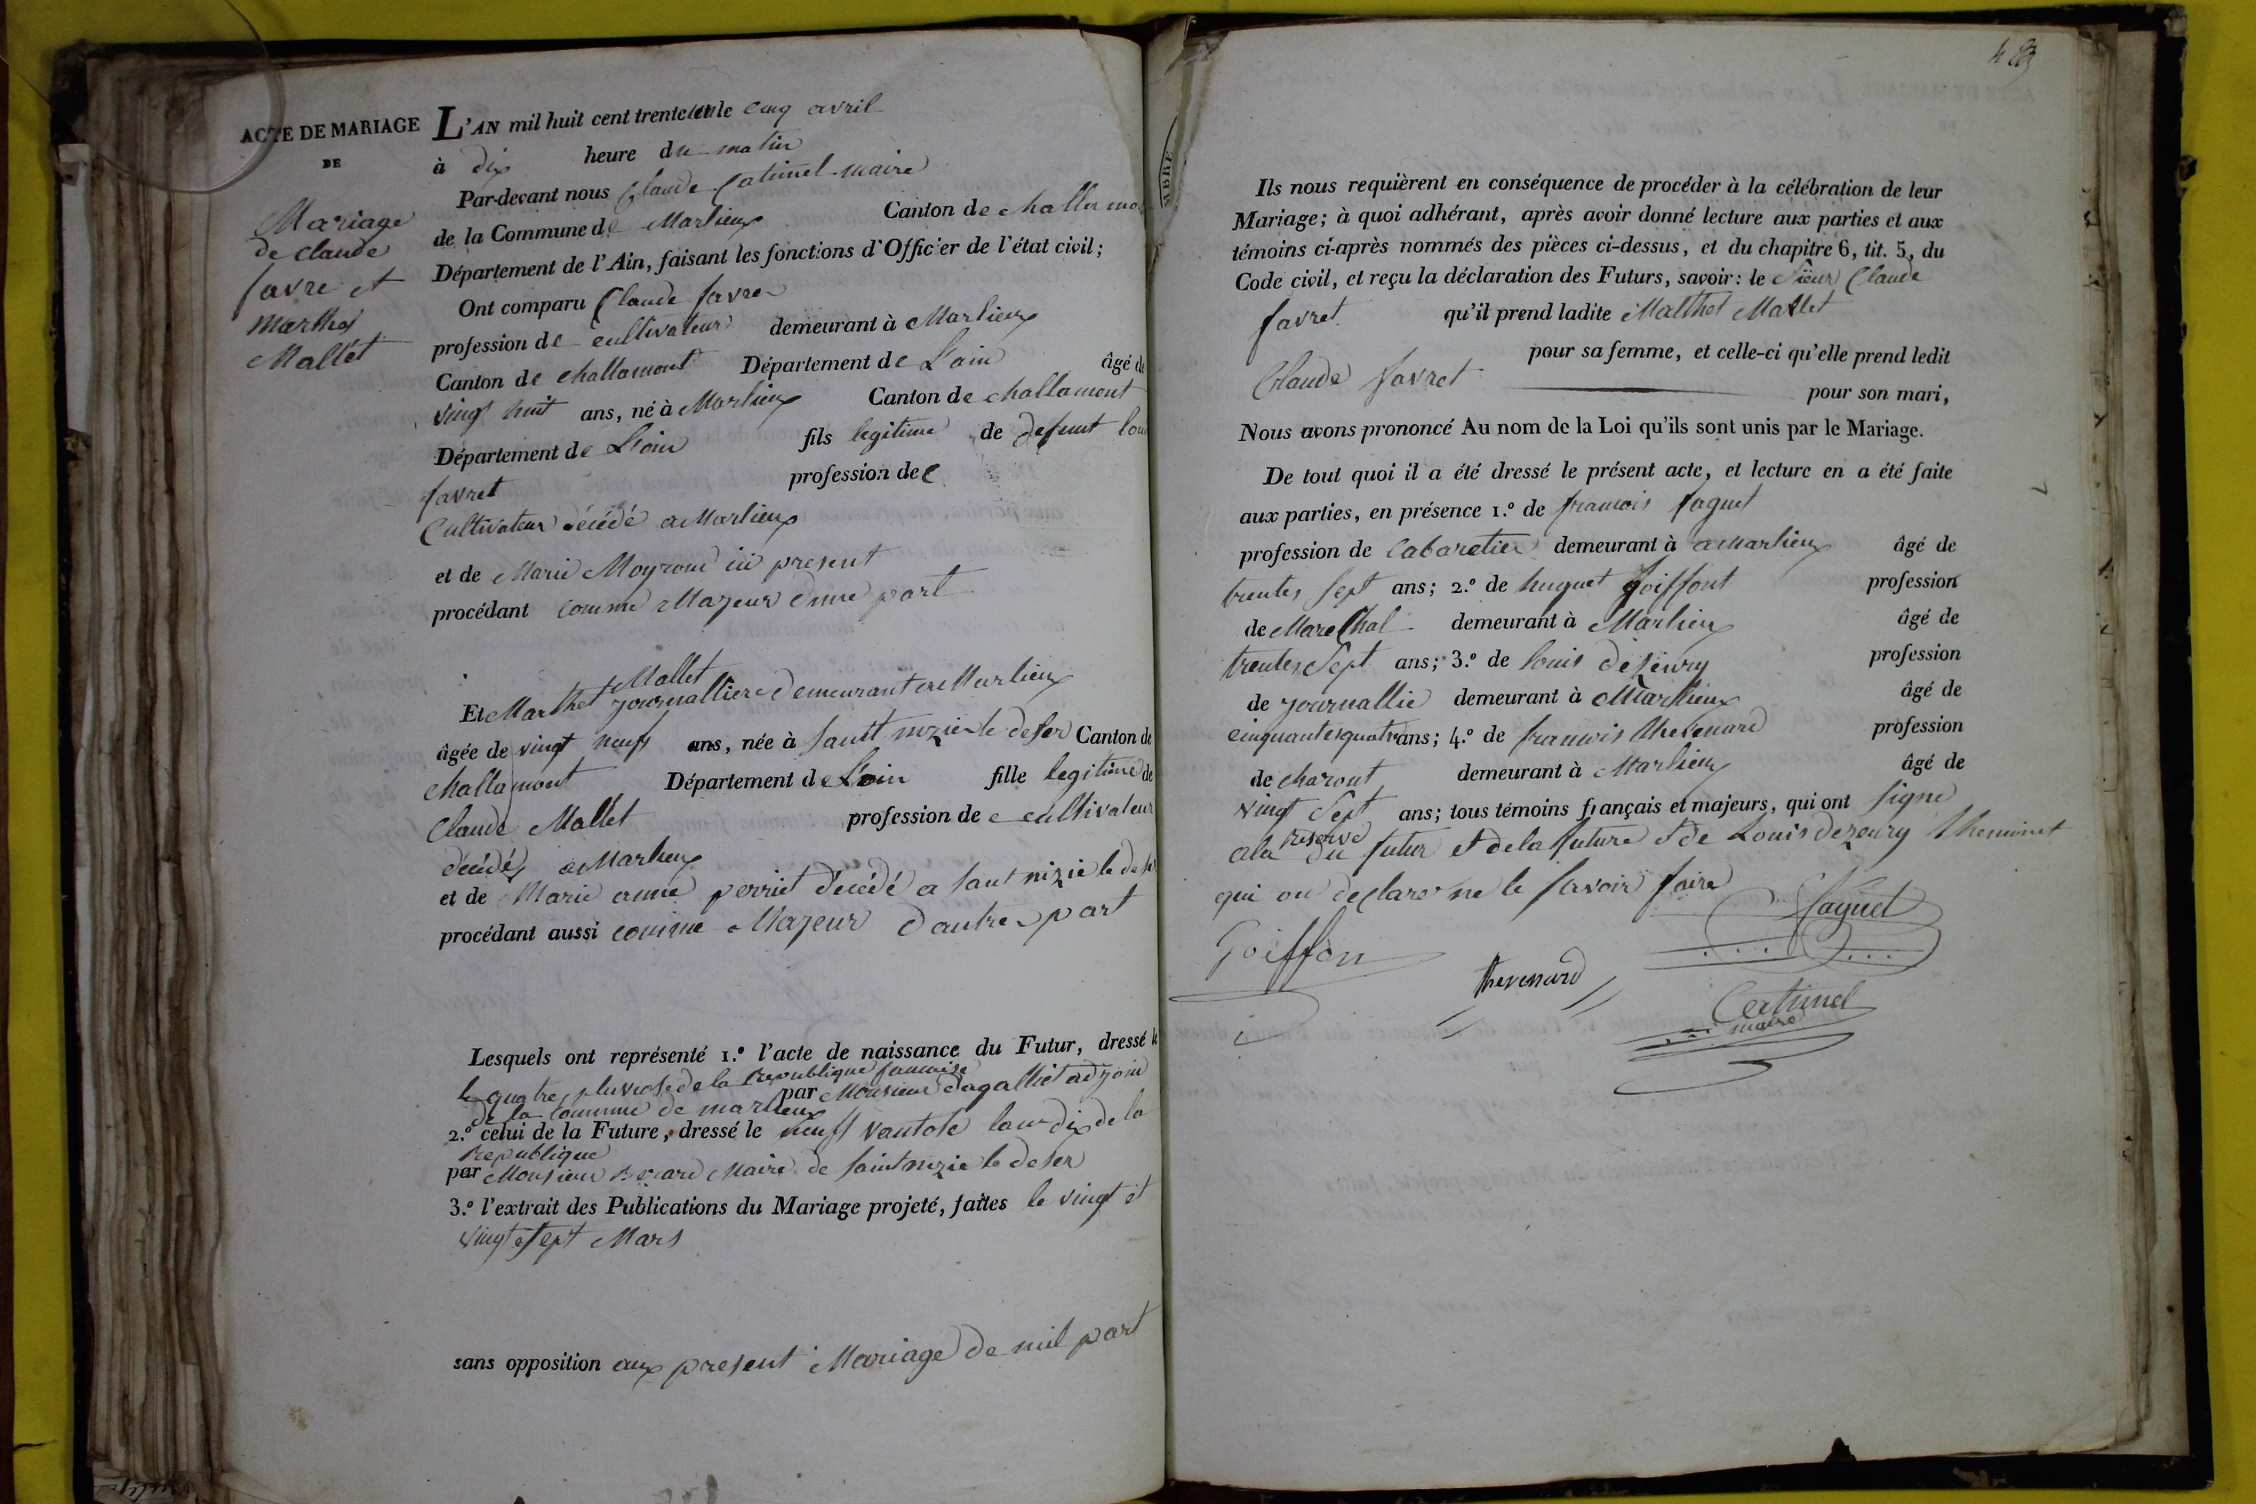 ACTE DE MARIAGE
DE
Mariage
de Claude
favre et
marthe
Mallet
L'AN mil huit cent trente un le cinq avril
à dix heure du matin
Par-devant nous Claude Catimel maire
de la Commune de Marlieux Canton de challamo
Département de l'Ain, faisant les fonctions d'Officier de l'état civil;
Ont comparu Claude favre
profession de cultivateur demeurant à Marlieux
Canton de challamont Département de L'ain âgé de
vingt huit ans, né à Marlieux Canton de challamont
Département de L'ain fils legitime de defunt lou
favret profession de
Cultivateur décédé a Marlieux
et de Marie Moyroud ici present
procédant comme Majeur d'une part
Mallet
Et Marthet journalliere demeurant a Marlieux
âgée de vingt neuf ans, née à saint nizie le deser Canton de
challamont Département de L'ain fille legitime de
Claude Mallet profession de cultivateur
décédé a Marlieux
et de Marie anne perriet décédé a saint nizie le des
procédant aussi comme Majeur d'autre part
Lesquels ont représenté 1.º l'acte de naissance du Futur, dressé le
le quatre pluviose de la Republique francaise
par Monsieur dagalliet adjoin
de la commune de marlieux
2.º celui de la Future, dressé le neuf vantose lan dix de la
Republique
par Monsieur Maire de saint nizie le deser
3.º l'extrait des Publications du Mariage projeté, faites le vingt et
vingt sept Mars
sans opposition aux present Mariage de nul part
483
MBRE
Ils nous requièrent en conséquence de procéder à la célébration de leur
Mariage; à quoi adhérant, après avoir donné lecture aux parties et aux
témoins ci-après nommés des pièces ci-dessus, et du chapitre 6, tit. 5, du
Code civil, et reçu la déclaration des Futurs, savoir: le Sieur Claude
favret qu'il prend ladite Malthet Mallet
pour sa femme, et celle-ci qu'elle prend ledit
Claude favret pour son mari,
Nous avons prononcé Au nom de la Loi qu'ils sont unis par le Mariage.
De tout quoi il a été dressé le présent acte, et lecture en a été faite
aux parties, en présence 1.º de francois faguet
profession de Cabaretier demeurant à a Marlieux âgé de
trentes sept ans; 2.º de huguet goiffont profession
de Marechal demeurant à Marlieux âgé de
trentes sept ans; 3.º de louis dezeury profession
de journallie demeurant à Marlieux âgé de
cinquantes quatre ans; 4.º de francois thevenard profession
de charont demeurant à Marlieux âgé de
vingt sept ans; tous témoins français et majeurs, qui ont signe
reserve
ala du futur et de la future et de Louis dezeury
qui on declare ne le savoir faire
faguet
Goiffon
thevenard
Catimel
maire